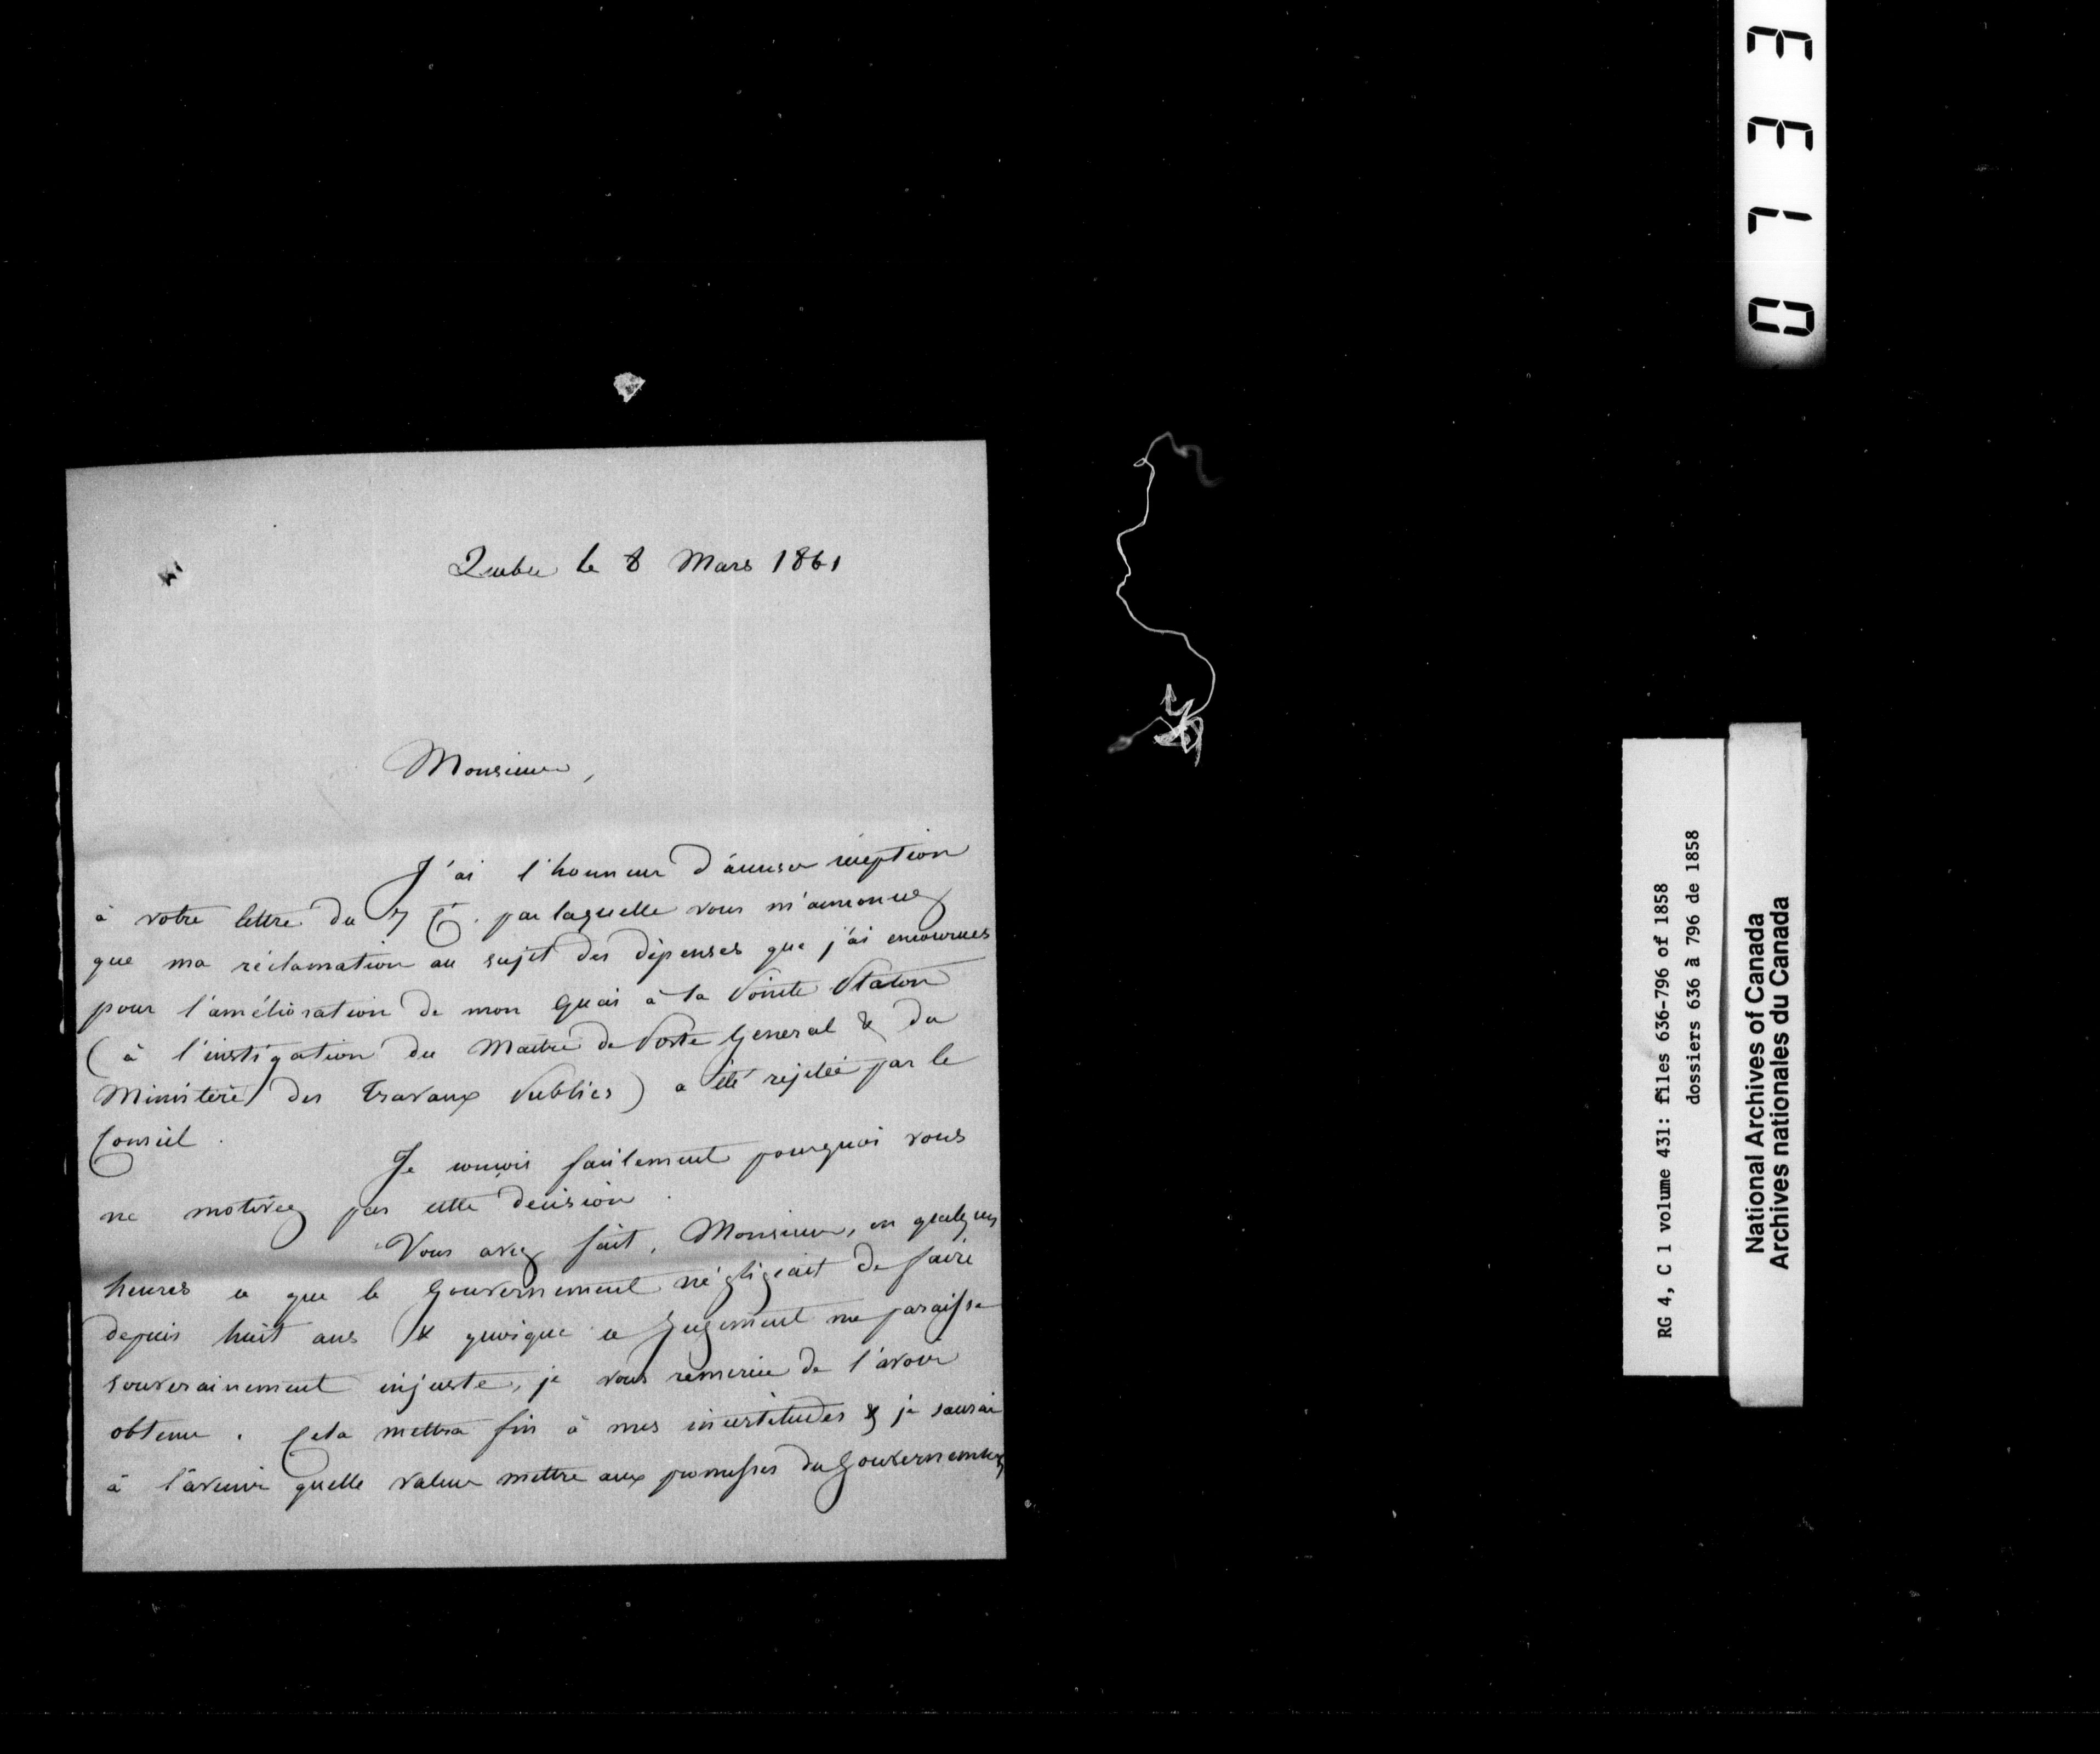 Quebec le 8 Mars 1861
Monsieur,
J'ai l'honneur d'accuser réception
à votre lettre du 7 Ct. par laquelle vous m'annoncez
que ma réclamation au sujet des dépenses que j'ai encourues
pour l'amélioration de mon Quai à la Pointe Platon
(à l'instigation du Maître de Poste General & du
Ministère des Travaux Publics) a été rejetée par le
Conseil.
Je conçois facilement pourquoi vous
ne motivez pas cette décision.
Vous avez fait, Monsieur, en quelques
heures ce que le Gouvernement négligeait de faire
depuis huit ans & quoique ce Jugement me paraisse
souverainement injuste, je vous remercie de l'avoir
obtenu. Cela mettra fin à mes incertitudes & je saurai
à l'avenir quelle valeur mettre aux promesses du Gouvernement
0133
RG 4, C 1 volume 431: files 636-796 of 1858
dossiers 636 à 796 de 1858
National Archives of Canada
Archives nationales du Canada